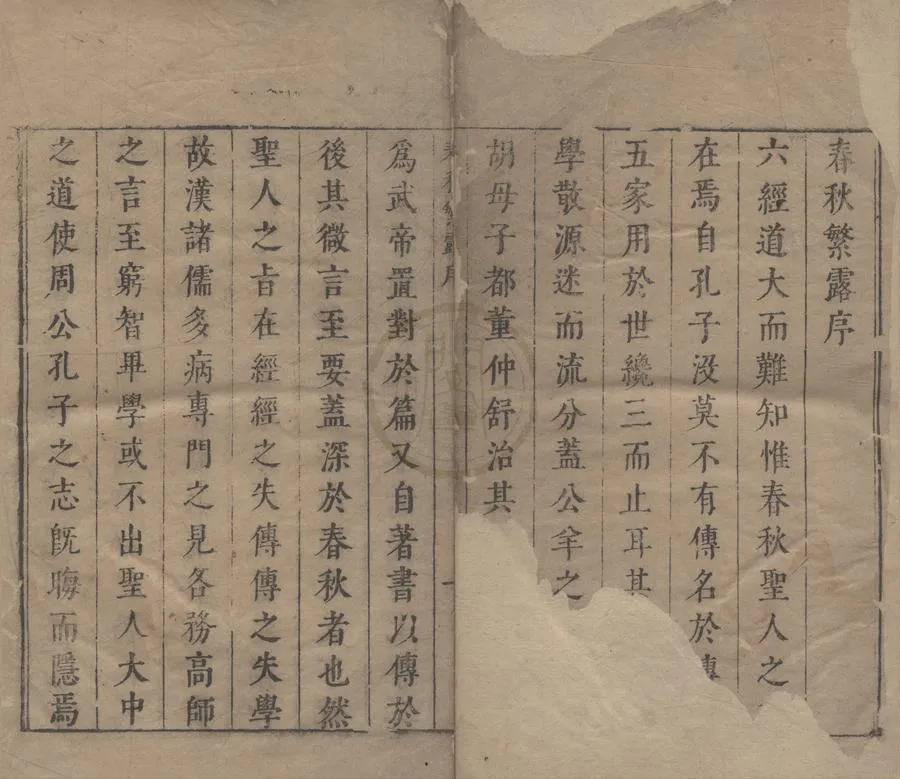 春秋繁露序
六經道大而難知惟春秋聖人之
在焉自孔子没莫不有傳名於傳
五家用於世纔三而止耳其
學散源迷而流分蓋公羊之
胡母子都董仲舒治其
春秋繁露序
一
爲武帝置對於篇又自著書以傳於
後其微言至要蓋深於春秋者也然
聖人之旨在經經之失傳傳之失學
故漢諸儒多病專門之見各務高師
之言至窮智畢學或不出聖人大中
之道使周公孔子之志旣晦而隱焉